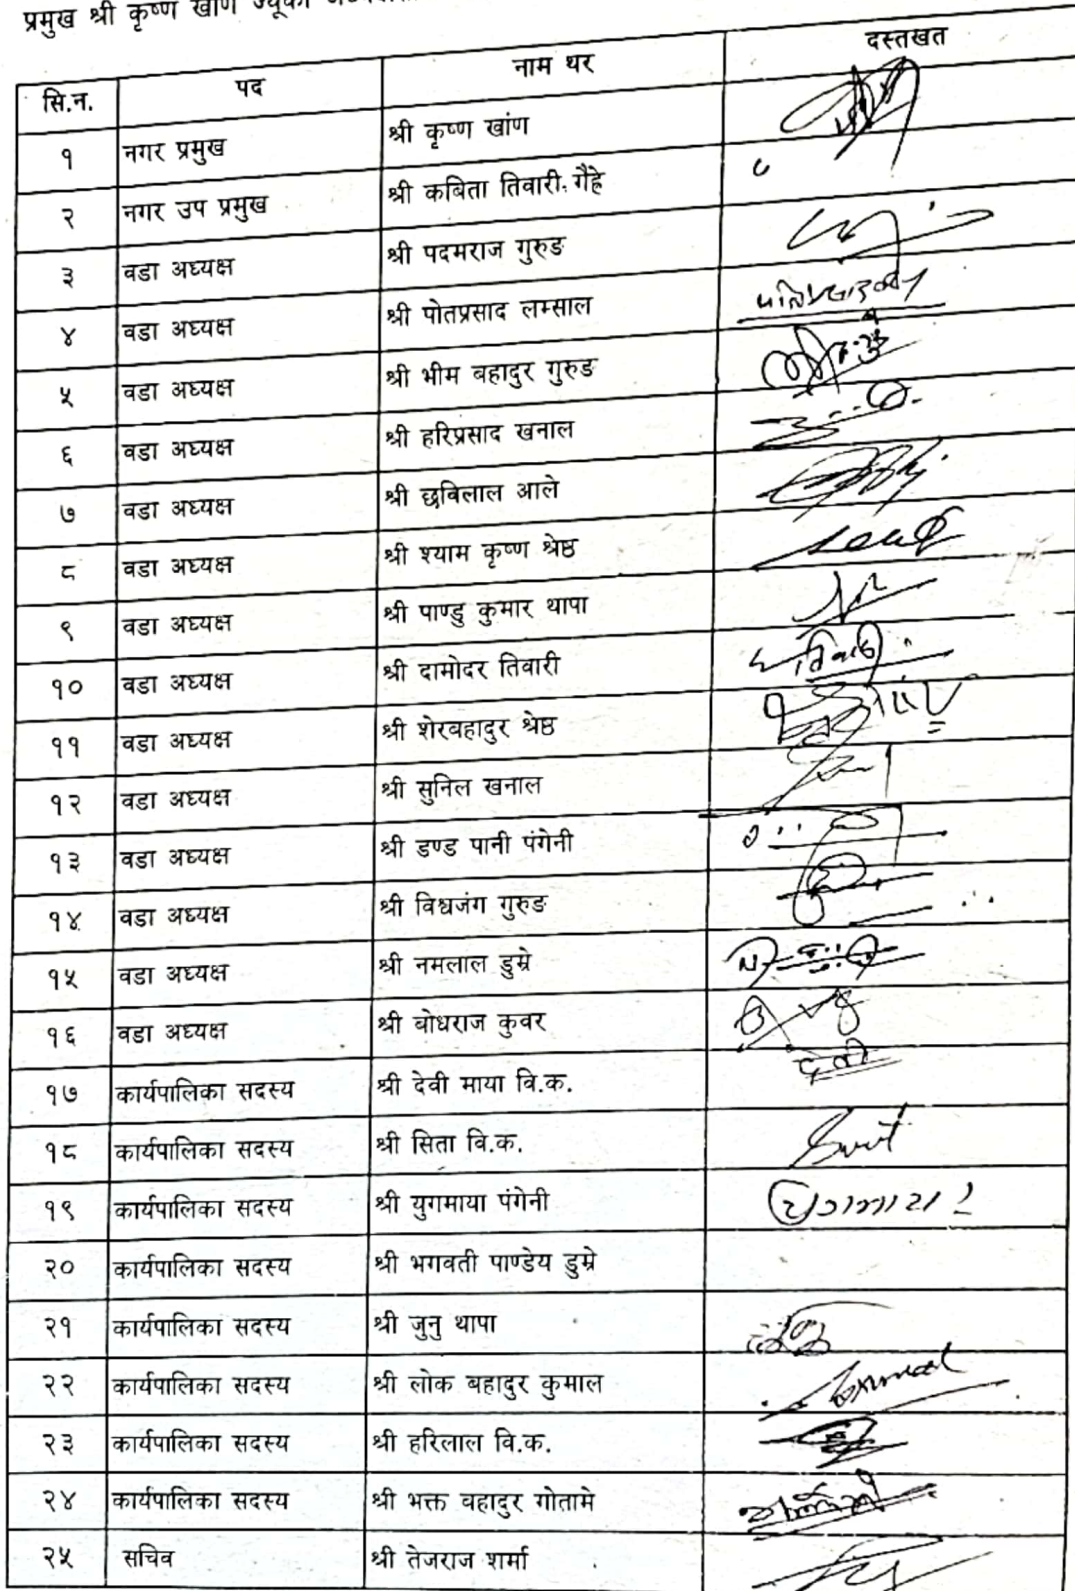 प्रमुख श्री कृष्ण खाँण ज्यूको
सि.न. पद नाम थर दस्तखत
१ नगर प्रमुख श्री कृष्ण खांण
२ नगर उप प्रमुख श्री कबिता तिवारी गैह्रे
३ वडा अध्यक्ष श्री पदमराज गुरुङ
४ वडा अध्यक्ष श्री पोतप्रसाद लम्साल
५ वडा अध्यक्ष श्री भीम बहादुर गुरुङ
६ वडा अध्यक्ष श्री हरिप्रसाद खनाल
७ वडा अध्यक्ष श्री छविलाल आले
८ वडा अध्यक्ष श्री श्याम कृष्ण श्रेष्ठ
९ वडा अध्यक्ष श्री पाण्डु कुमार थापा
१० वडा अध्यक्ष श्री दामोदर तिवारी
११ वडा अध्यक्ष श्री शेरबहादुर श्रेष्ठ
१२ वडा अध्यक्ष श्री सुनिल खनाल
१३ वडा अध्यक्ष श्री डण्ड पानी पंगेनी
१४ वडा अध्यक्ष श्री विश्वजंग गुरुङ
१५ वडा अध्यक्ष श्री नमलाल डुम्रे
१६ वडा अध्यक्ष श्री बोधराज कुवर
१७ कार्यपालिका सदस्य श्री देवी माया वि.क. देवी
१८ कार्यपालिका सदस्य श्री सिता वि.क.
१९ कार्यपालिका सदस्य श्री युगमाया पंगेनी युगमाया
२० कार्यपालिका सदस्य श्री भगवती पाण्डेय डुम्रे
२१ कार्यपालिका सदस्य श्री जुनु थापा
२२ कार्यपालिका सदस्य श्री लोक बहादुर कुमाल
२३ कार्यपालिका सदस्य श्री हरिलाल वि.क.
२४ कार्यपालिका सदस्य श्री भक्त बहादुर गोतामे
२५ सचिव श्री तेजराज शर्मा